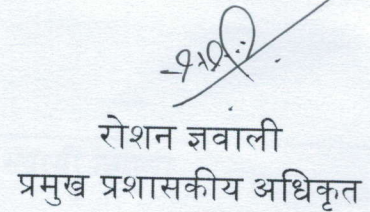 रोशन ज्ञवाली
प्रमुख प्रशासकीय अधिकृत